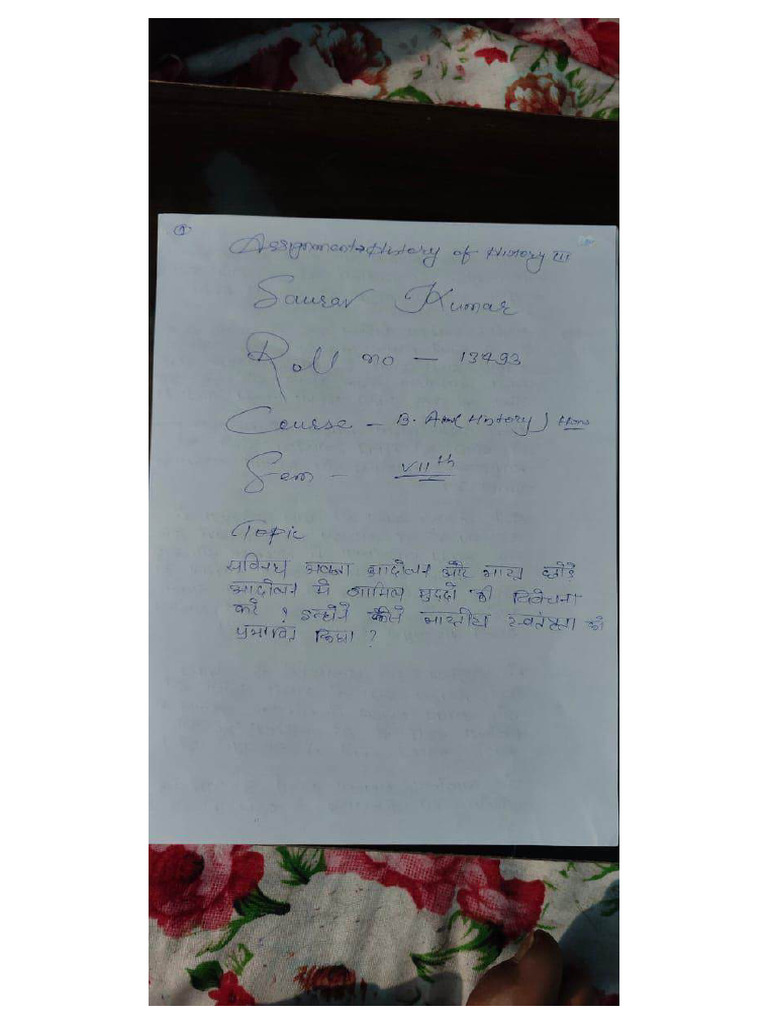 Assignment → History of History III
Saurav Kumar
Roll no — 13493
Course — B. A (History) Hons
Sem — VIIth
Topic
सविनय अवज्ञा आंदोलन और भारत छोड़ो
आंदोलन में शामिल मुद्दों की विवेचना
करें ? इन्होंने कैसे भारतीय स्वतंत्रता को
प्रभावित किया ?